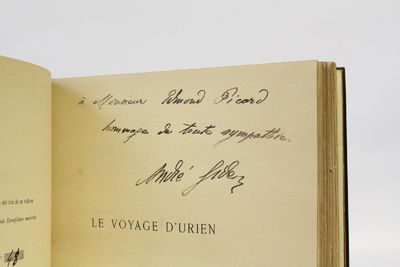 à Monsieur Edmond Picard
hommage de toute sympathie.
André Gide
LE VOYAGE D'URIEN
été tiré de ce volume
Exemplaires numérotés.